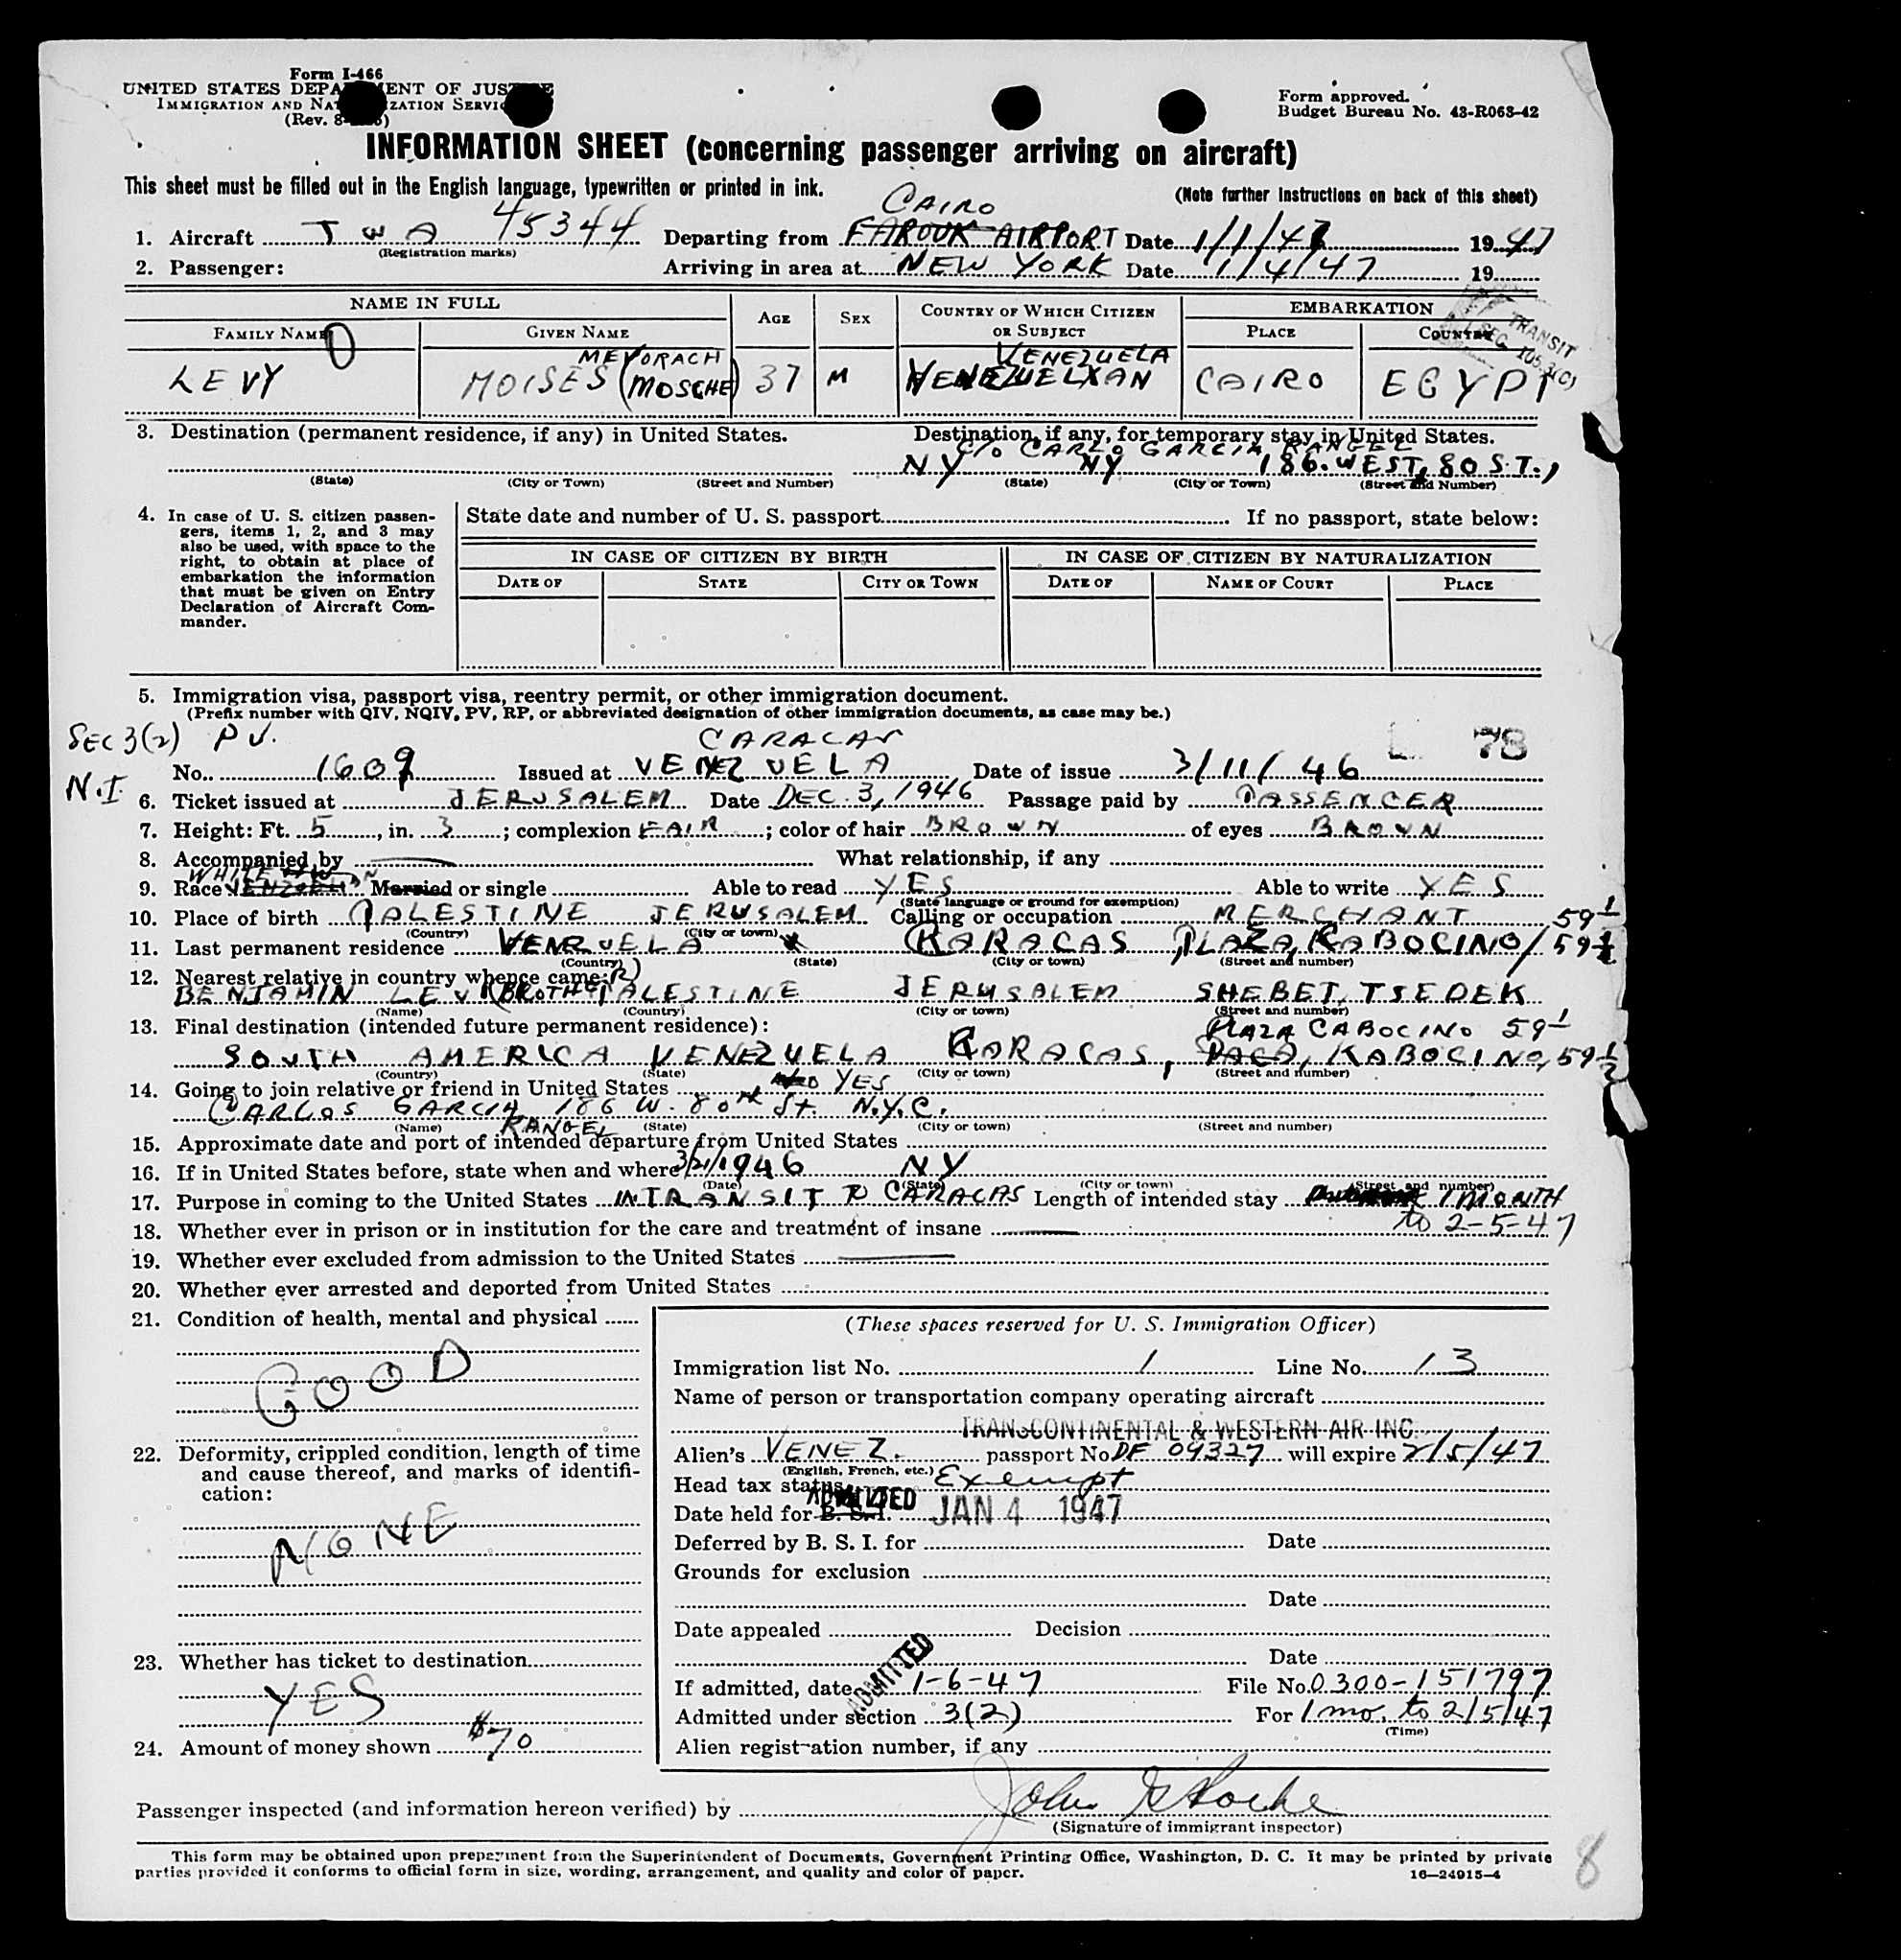 Form I-466
UNITED STATES DEPARTMENT OF JUSTICE
IMMIGRATION AND NATURALIZATION SERVICE
(Rev. 8-
Form approved.
Budget Bureau No. 43-R063-42
INFORMATION SHEET (concerning passenger arriving on aircraft)
This sheet must be filled out in the English language, typewritten or printed in ink.
(Note further instructions on back of this sheet)
CAIRO
1. Aircraft TWA 45344 Departing from FAROUK AIRPORT Date 1/1/47 1947
(Registration marks)
2. Passenger: Arriving in area at NEW YORK Date 1/4/47 19
NAME IN FULL AGE SEX COUNTRY OF WHICH CITIZEN OR SUBJECT EMBARKATION
FAMILY NAME GIVEN NAME PLACE COUNTRY
TRANSIT
SEC. 105.3(C)
MEYORACH VENEZUELA
LEVY MOISES (MOSCHE) 37 M VENEZUELXAN CAIRO EGYPT
3. Destination (permanent residence, if any) in United States. Destination, if any, for temporary stay in United States.
C/O CARLO GARCIA RANGEL
NY NY 186. WEST, 80 S.T.,
(State) (City or Town) (Street and Number) (State) (City or Town) (Street and Number)
4. In case of U. S. citizen passen-
gers, items 1, 2, and 3 may
also be used, with space to the
right, to obtain at place of
embarkation the information
that must be given on Entry
Declaration of Aircraft Com-
mander.
State date and number of U. S. passport If no passport, state below:
IN CASE OF CITIZEN BY BIRTH IN CASE OF CITIZEN BY NATURALIZATION
DATE OF STATE CITY OR TOWN DATE OF NAME OF COURT PLACE
5. Immigration visa, passport visa, reentry permit, or other immigration document.
(Prefix number with QIV, NQIV, PV, RP, or abbreviated designation of other immigration documents, as case may be.)
SEC 3(2) PV. CARACAS 78
N.I.
No. 1609 Issued at VENEZUELA Date of issue 3/11/46
6. Ticket issued at JERUSALEM Date DEC. 3, 1946 Passage paid by PASSENGER
7. Height: Ft. 5, in. 3; complexion FAIR; color of hair BROWN of eyes BROWN
8. Accompanied by What relationship, if any
WHITE
9. Race Married or single Able to read YES Able to write YES
(State language or ground for exemption)
10. Place of birth PALESTINE JERUSALEM Calling or occupation MERCHANT 59 1/
(Country) (City or town)
11. Last permanent residence VENEZUELA KARACAS PLAZA, KABOCINO/59 1/2
(Country) (State) (City or town) (Street and number)
12. Nearest relative in country whence came:
BENJAMIN LEVI (BROTHER) PALESTINE JERUSALEM SHEBET, TSEDEK
(Name) (Country) (City or town) (Street and number)
13. Final destination (intended future permanent residence): PLAZA CABOCINO 59 1/
SOUTH AMERICA VENEZUELA CARACAS, PACA, KABOCINO, 59 1/2
(Country) (State) (City or town) (Street and number)
14. Going to join relative or friend in United States YES
CARLOS GARCIA 186 W. 80th St. N.Y.C.
(Name) RANGEL (State) (City or town) (Street and number)
15. Approximate date and port of intended departure from United States
16. If in United States before, state when and where 3/21/1946 NY
(Date) (State) (City or town) (Street and number)
17. Purpose in coming to the United States IN TRANSIT TO CARACAS Length of intended stay 1 MONTH
to 2-5-47
18. Whether ever in prison or in institution for the care and treatment of insane
19. Whether ever excluded from admission to the United States
20. Whether ever arrested and deported from United States
21. Condition of health, mental and physical
GOOD
22. Deformity, crippled condition, length of time
and cause thereof, and marks of identifi-
cation:
NONE
23. Whether has ticket to destination
YES
24. Amount of money shown $70
(These spaces reserved for U. S. Immigration Officer)
Immigration list No. 1 Line No. 13
Name of person or transportation company operating aircraft
TRANSCONTINENTAL & WESTERN AIR INC.
Alien's VENEZ. passport No. DF 09327 will expire 2/5/47
(English, French, etc.)
Head tax status Exempt
ADMITTED
Date held for B. S. I. JAN 4 1947
Deferred by B. S. I. for Date
Grounds for exclusion
Date
Date appealed Decision
Date
ADMITTED
If admitted, date 1-6-47 File No. 0300-151797
Admitted under section 3(2) For 1 mo. to 2/5/47
(Time)
Alien registration number, if any
Passenger inspected (and information hereon verified) by John
(Signature of immigrant inspector)
This form may be obtained upon prepayment from the Superintendent of Documents, Government Printing Office, Washington, D. C. It may be printed by private
parties provided it conforms to official form in size, wording, arrangement, and quality and color of paper. 16—24915-4
8